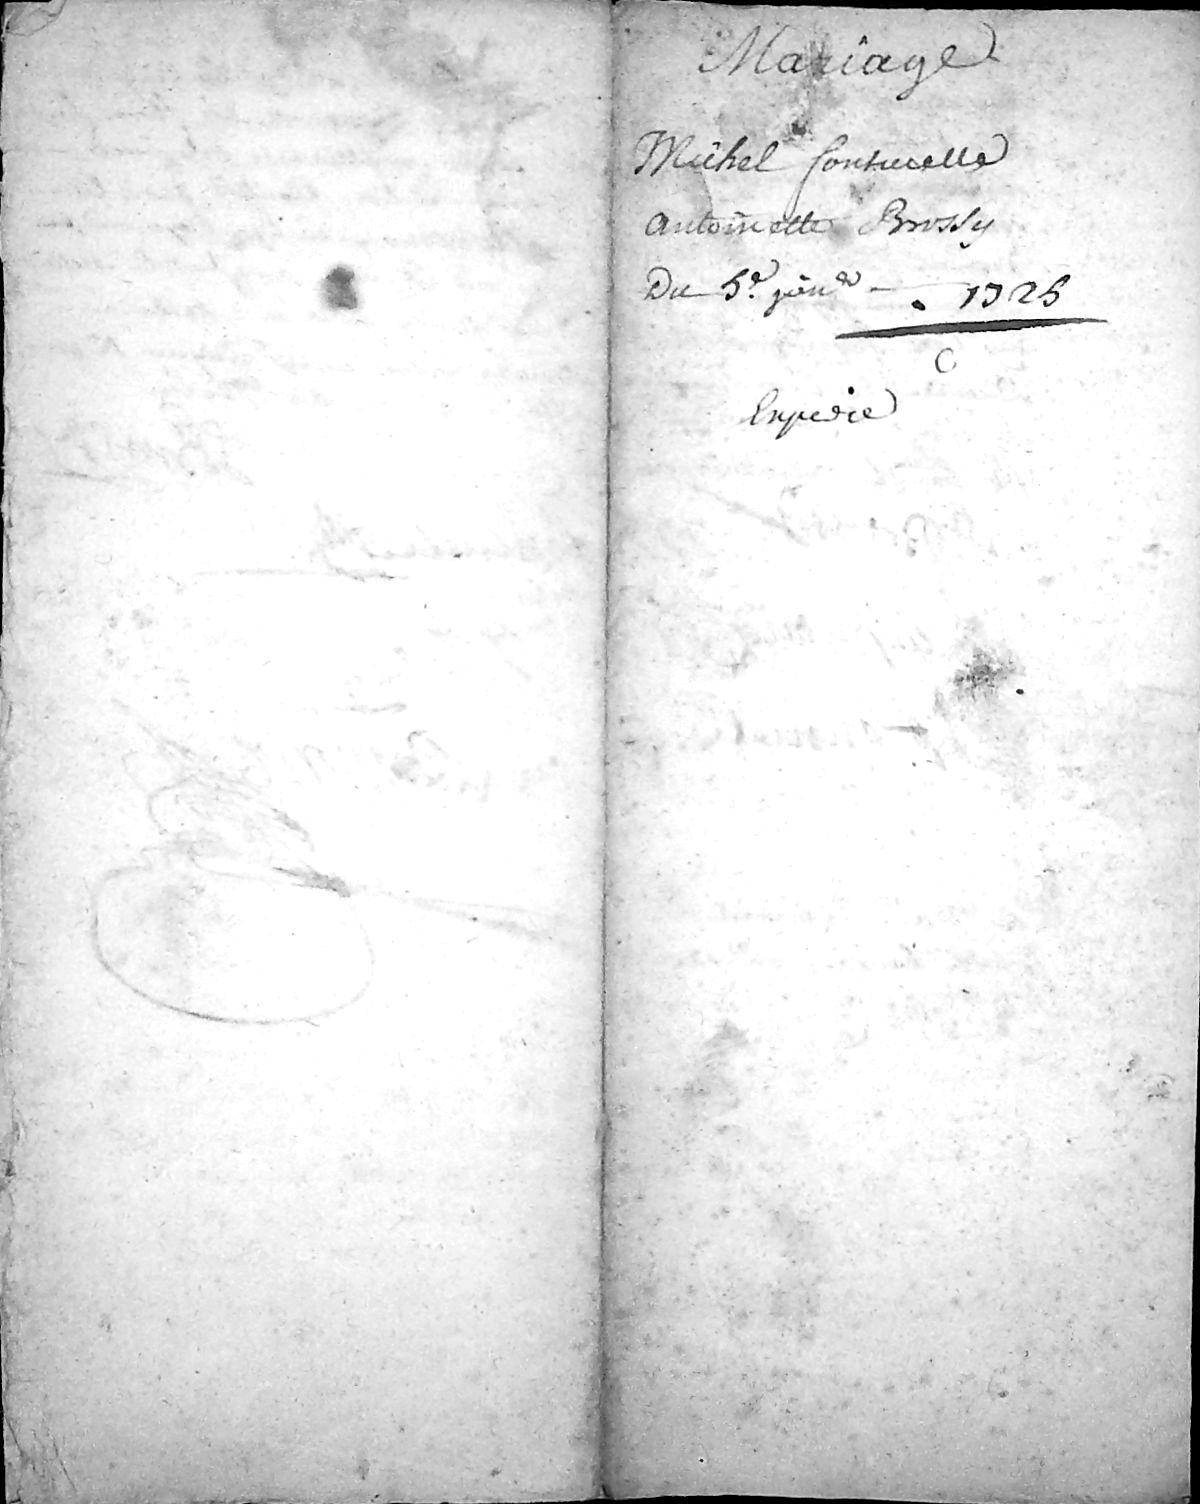 Mariage
Michel fonturelle
antoinette Brossy
Du 5e janer 1725
C
Expedie